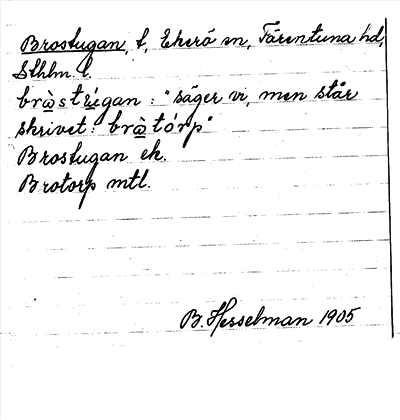 Brostugan, t, Ekerö sn, Färentuna hd,
Sthlm l.
bròstùgan : "säger vi, men står
skrivet: bròtórp"
Brostugan ek.
Brotorp mtl.
B. Hesselman 1905